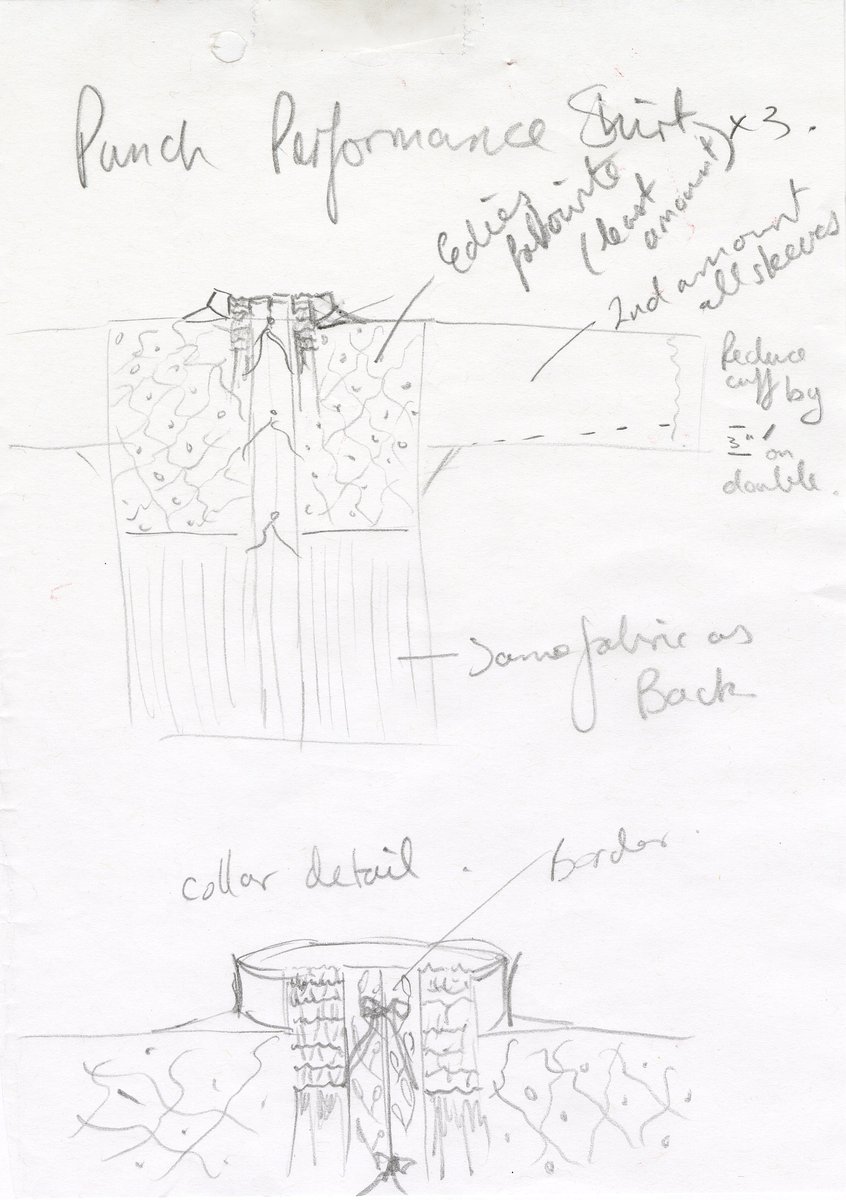 Punch Performance Shirt x 3.
Edies
favourite
(least
amount)
2nd amount
all sleeves
Reduce
cuff by
3" on
double.
Same fabric as
Back
collar detail.
Border.